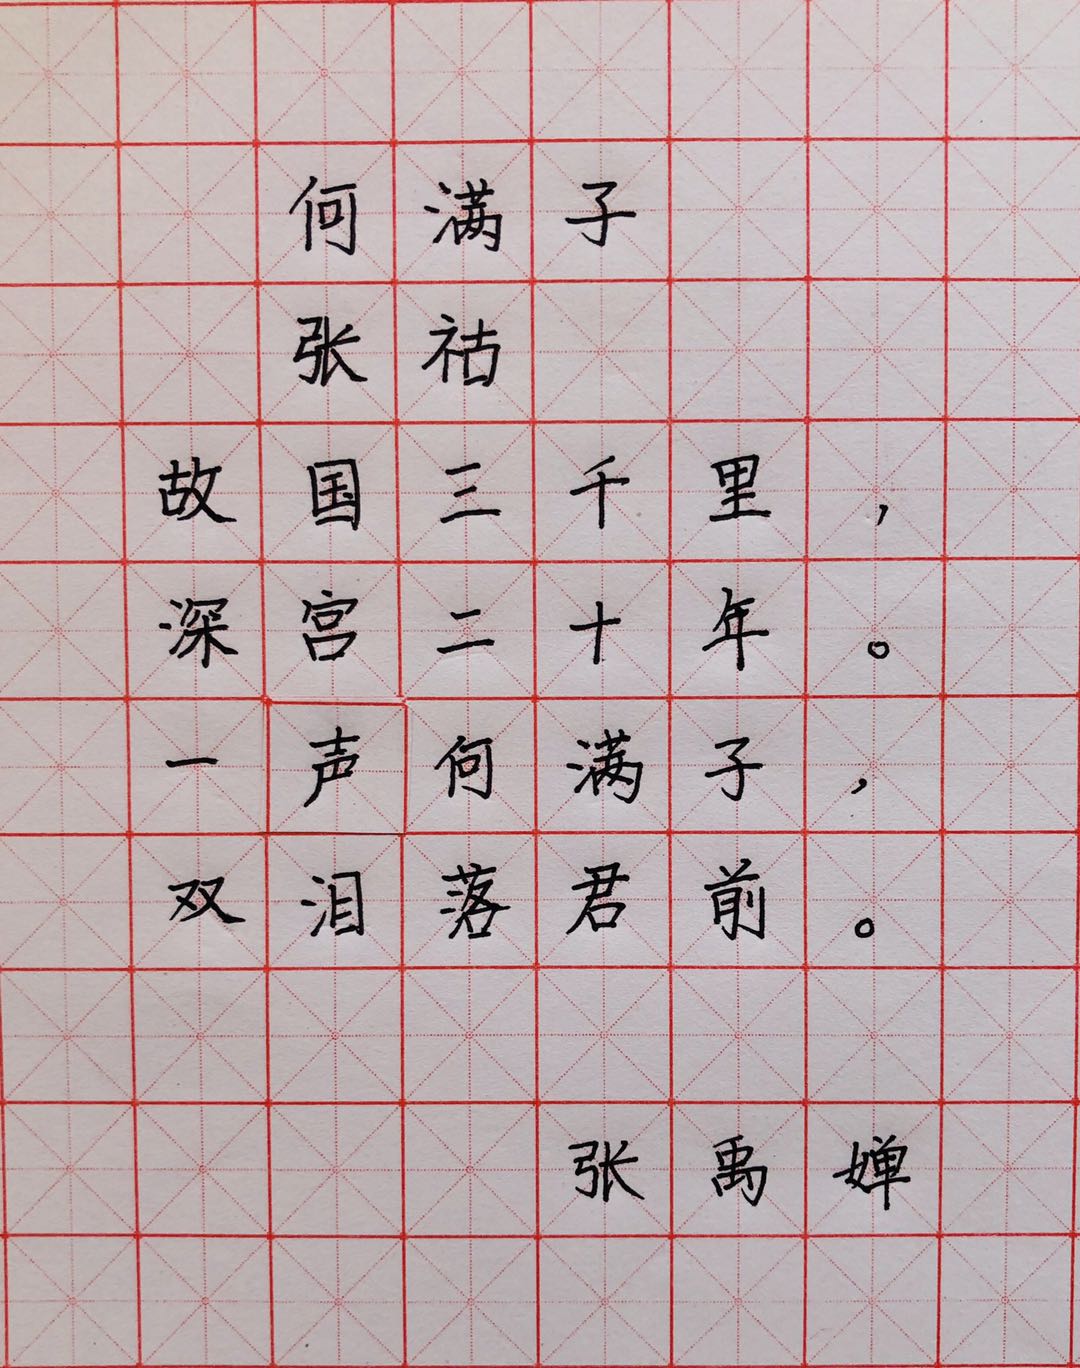 何满子
张祜
故国三千里，
深宫二十年。
一声何满子，
双泪落君前。
张禹婵